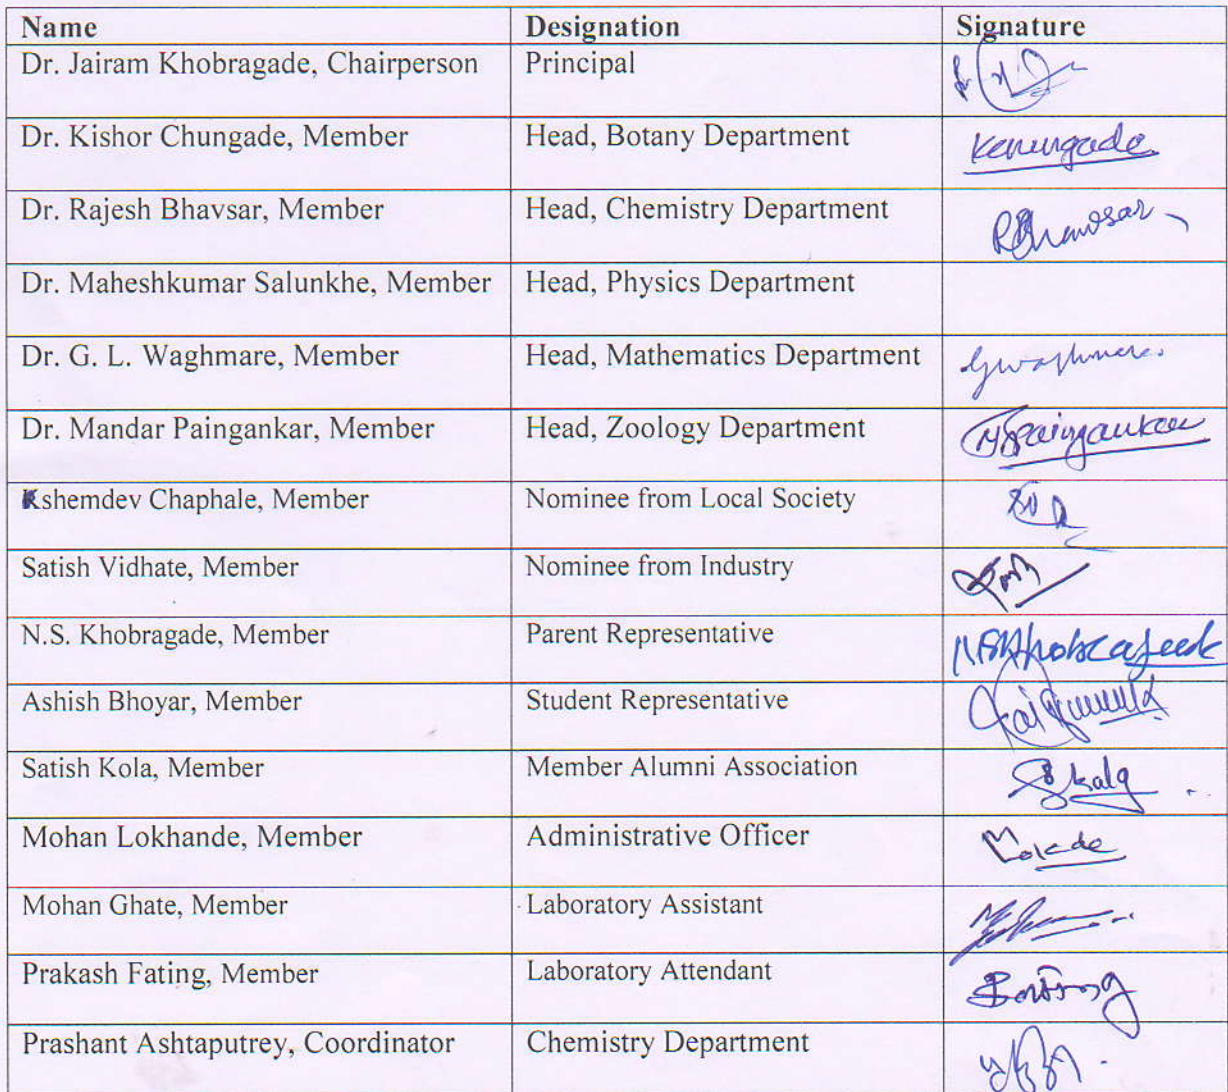 Name Designation Signature
Dr. Jairam Khobragade, Chairperson Principal
Dr. Kishor Chungade, Member Head, Botany Department
Dr. Rajesh Bhavsar, Member Head, Chemistry Department
Dr. Maheshkumar Salunkhe, Member Head, Physics Department
Dr. G. L. Waghmare, Member Head, Mathematics Department
Dr. Mandar Paingankar, Member Head, Zoology Department
Kshemdev Chaphale, Member Nominee from Local Society
Satish Vidhate, Member Nominee from Industry
N.S. Khobragade, Member Parent Representative
Ashish Bhoyar, Member Student Representative
Satish Kola, Member Member Alumni Association
Mohan Lokhande, Member Administrative Officer
Mohan Ghate, Member Laboratory Assistant
Prakash Fating, Member Laboratory Attendant
Prashant Ashtaputrey, Coordinator Chemistry Department